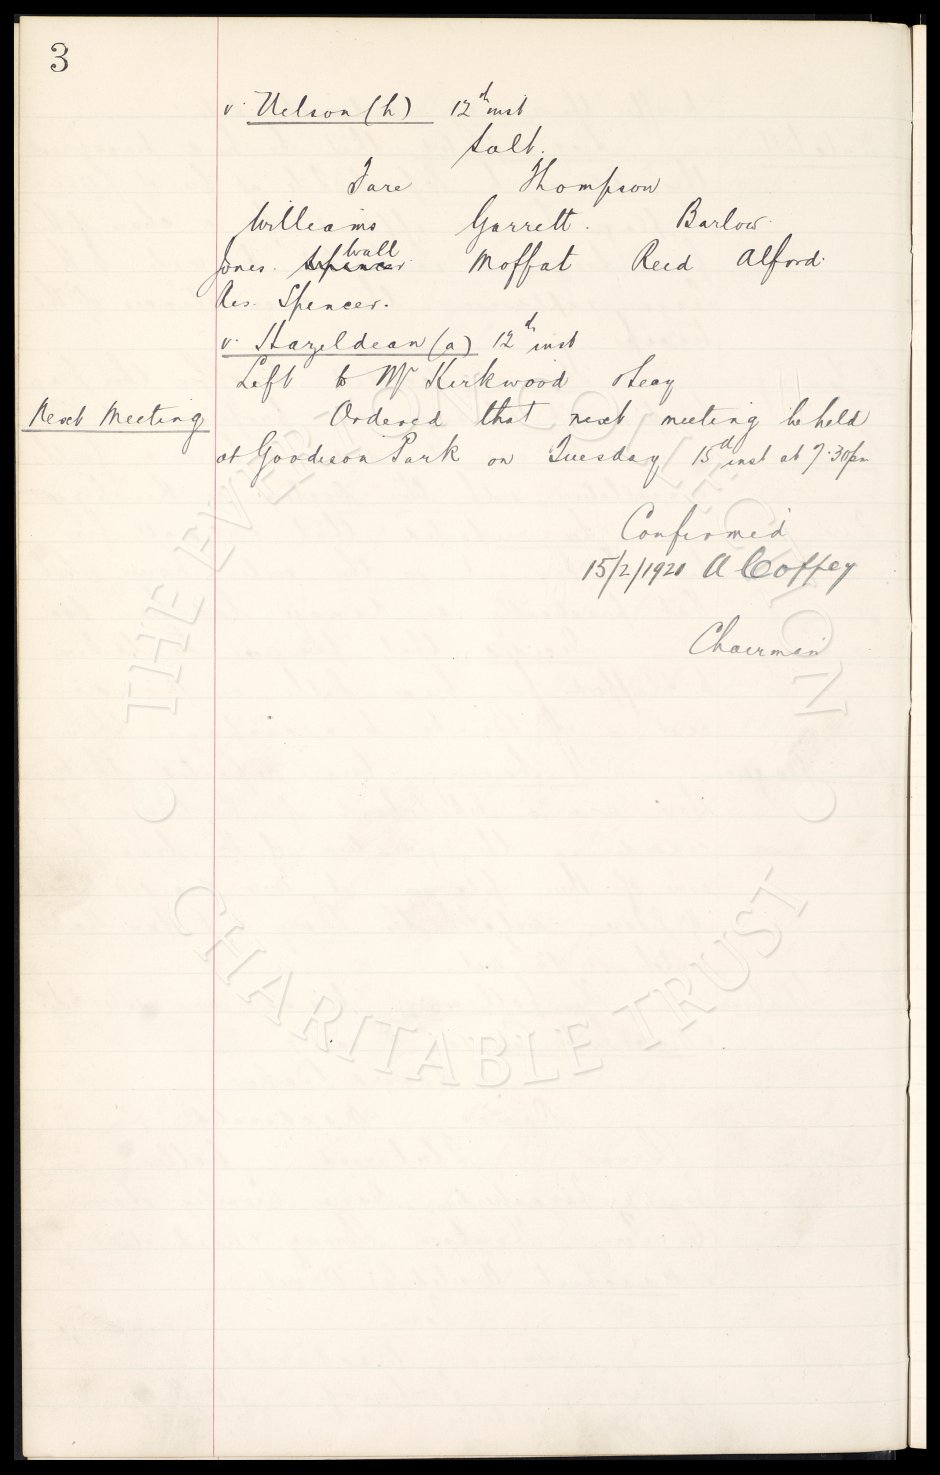 3
v. Nelson (h) 12th inst
Salt.
Fare Thompson
Williams Garrett. Barlow.
Jones. Spencer. Wall Moffat Reid Alford.
Res. Spencer.
v. Hazeldean (a) 12th inst
Left to Mr Kirkwood & Leay
Next Meeting Ordered that next meeting be held
at Goodison Park on Tuesday 15th inst at 7.30pm
Confirmed
15/2/1921 A Coffey
Chairman
THE EVERTON COLLECTION
CHARITABLE TRUST